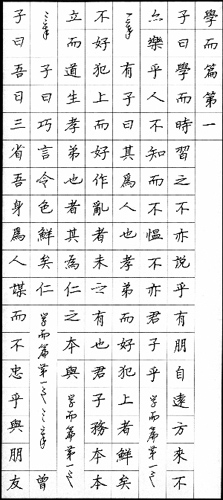 學而篇第一
子曰學而時習之不亦說乎有朋自遠方來不
亦樂乎人不知而不慍不亦君子乎 學而篇第一之
一章 有子曰其爲人也孝弟而好犯上者鮮矣
不好犯上而好作亂者未之有也君子務本本
立而道生孝弟也者其為仁之本與 學而篇第一之
二章 子曰巧言令色鮮矣仁 學而篇第一之三章 曾
子曰吾日三省吾身爲人謀而不忠乎與朋友